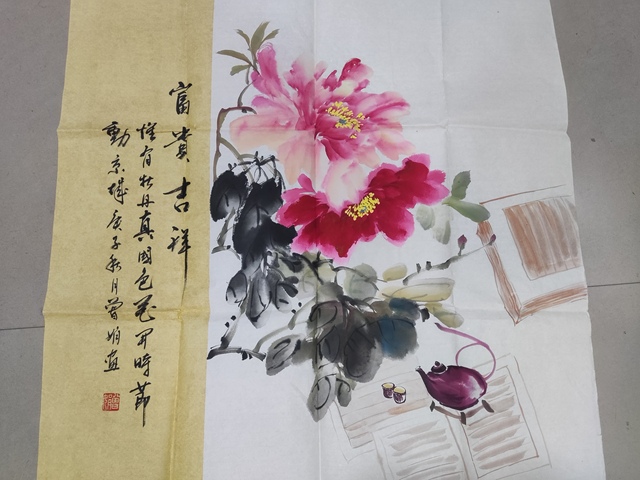 富贵吉祥
惟有牡丹真国色花开時节
動京城庚子秋月曾娟画